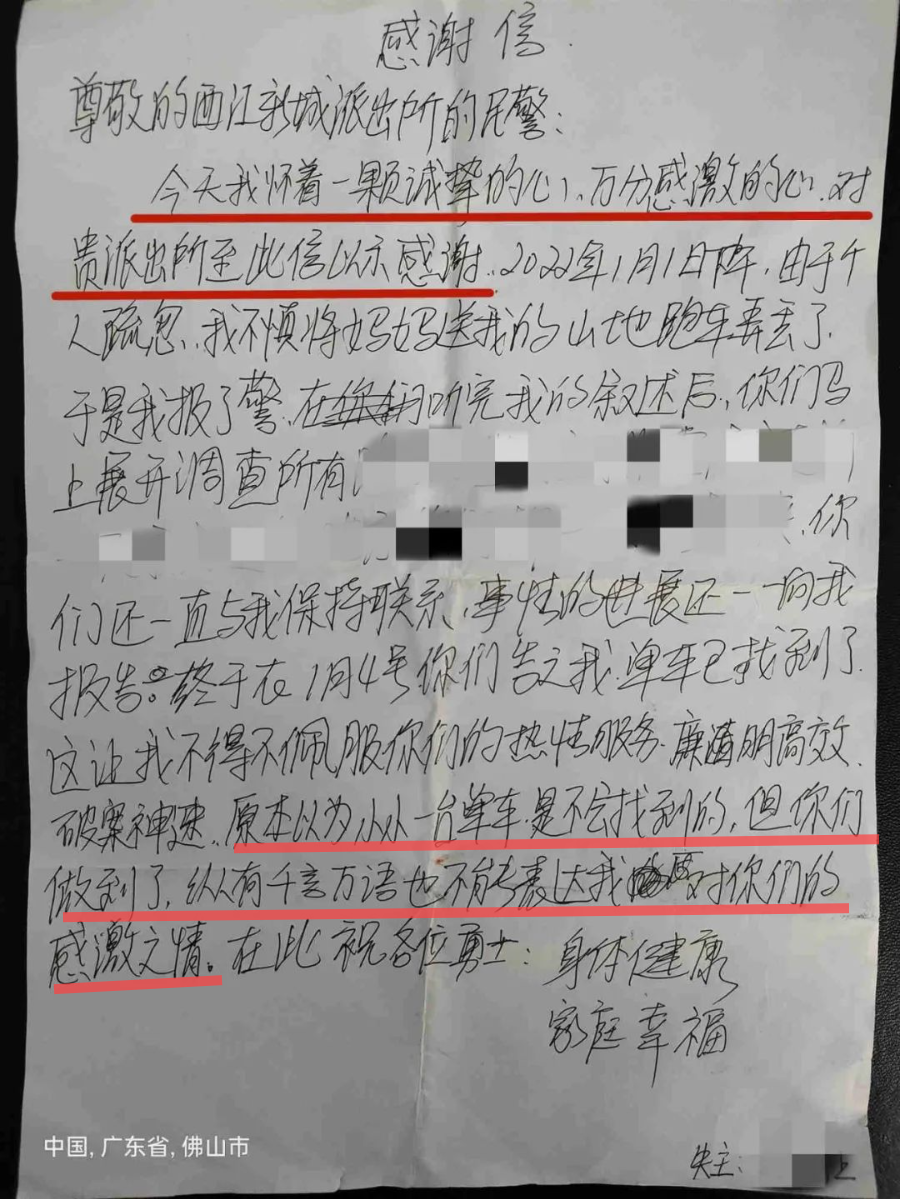 感谢信.
尊敬的西江新城派出所的民警:
今天我怀着一颗诚挚的心、万分感激的心.对
贵派出所至此信以示感谢.2022年1月1日下午,由于个
人疏忽.我不慎将妈妈送我的山地跑车弄丢了.
于是我报了警.在听完我的叙述后,你们马
上展开调查所有
你
们还一直与我保持联系,事情的进展还一一向我
报告。终于在1月4号你们告之我.单车已找到了.
这让我不得不佩服你们的热情服务.廉清明高效.
破案神速.原本以为小小一台单车.是不会找到的,但你们
做到了,纵有千言万语也不能表达我对你们的
感激之情。在此祝各位勇士:身体健康
家庭幸福
中国,广东省,佛山市
失主: